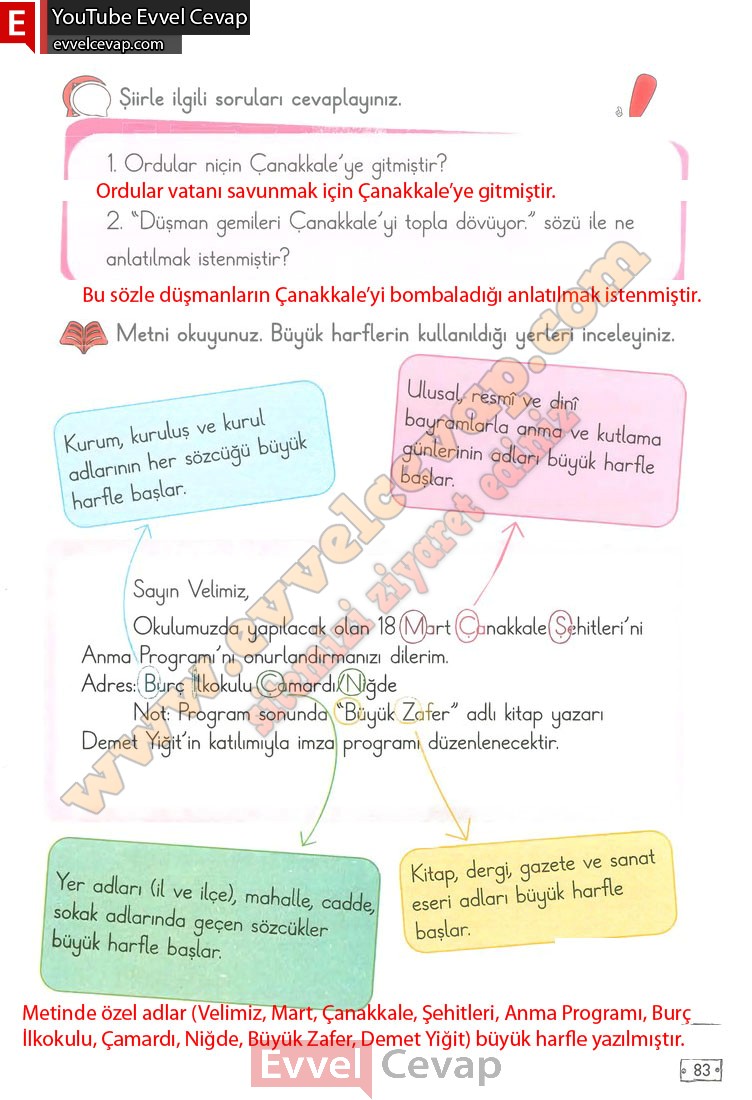 E
YouTube Evvel Cevap
evvelcevap.com
Şiirle ilgili soruları cevaplayınız.
1. Ordular niçin Çanakkale'ye gitmiştir?
Ordular vatanı savunmak için Çanakkale'ye gitmiştir.
2. “Düşman gemileri Çanakkale'yi topla dövüyor.” sözü ile ne
anlatılmak istenmiştir?
Bu sözle düşmanların Çanakkale'yi bombaladığı anlatılmak istenmiştir.
Metni okuyunuz. Büyük harflerin kullanıldığı yerleri inceleyiniz.
Kurum, kuruluş ve kurul
adlarının her sözcüğü büyük
harfle başlar.
Ulusal, resmî ve dinî
bayramlarla anma ve kutlama
günlerinin adları büyük harfle
başlar.
Sayın Velimiz,
Okulumuzda yapılacak olan 18 Mart Çanakkale Şehitleri'ni
Anma Programı'nı onurlandırmanızı dilerim.
Adres: Burç İlkokulu Çamardı/Niğde
Not: Program sonunda “Büyük Zafer” adlı kitap yazarı
Demet Yiğit'in katılımıyla imza programı düzenlenecektir.
Yer adları (il ve ilçe), mahalle, cadde,
sokak adlarında geçen sözcükler
büyük harfle başlar.
Kitap, dergi, gazete ve sanat
eseri adları büyük harfle
başlar.
www.evvelcevap.com
sitemizi ziyaret ediniz
Metinde özel adlar (Velimiz, Mart, Çanakkale, Şehitleri, Anma Programı, Burç
İlkokulu, Çamardı, Niğde, Büyük Zafer, Demet Yiğit) büyük harfle yazılmıştır.
Evvel Cevap
83